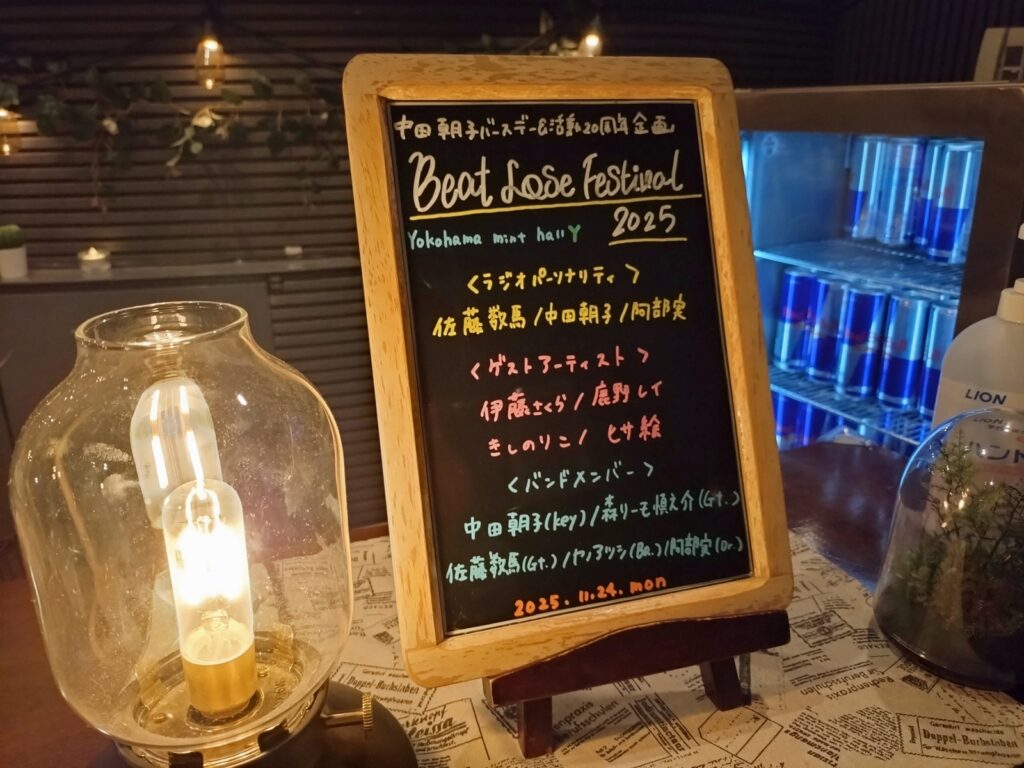 中田朝子バースデー&活動20周年企画
Beat Lose Festival
2025
Yokohama mint hall
<ラジオパーソナリティ>
佐藤数馬/中田朝子/阿部実
<ゲストアーティスト>
伊藤さくら/鹿野レイ
きしのりこ/ヒサ絵
<バンドメンバー>
中田朝子(key)/森リーモ慎之介(Gt.)
佐藤数馬(Gt.)/ヤノアツシ(Ba.)/阿部実(Dr.)
2025.11.24.mon
LION
LION
Doppel-Buchstaben
Doppel-Buchstaben